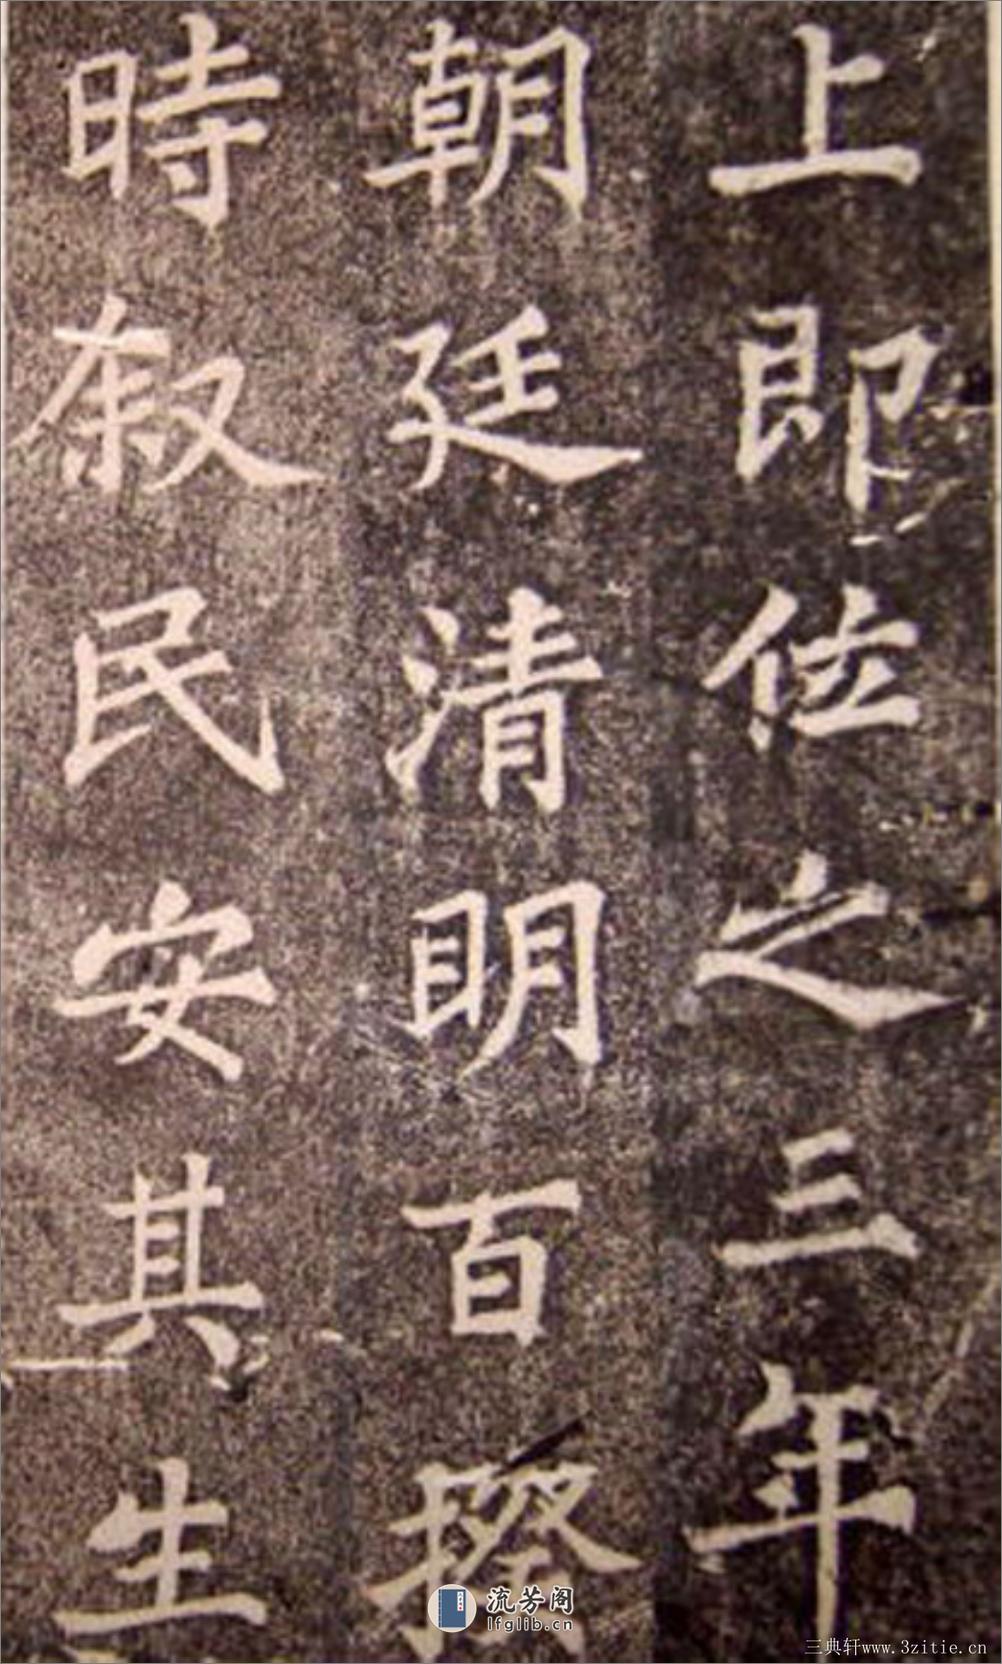 上即位之三年
朝廷清明百揆
時叙民安其生
流芳阁
lfglib.cn
三典轩www.3zitie.cn